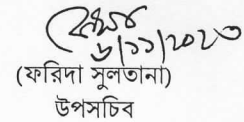 ৬/১১/২০২৩
(ফরিদা সুলতানা)
উপসচিব